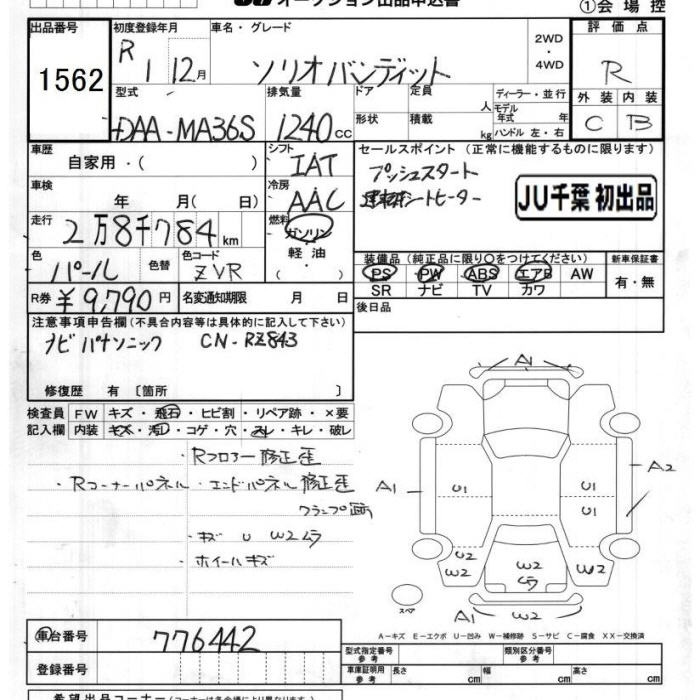 オークション出品申込書
①会場控
出品番号 初度登録年月 車名・グレード 評価点
1562 R 1 12月 ソリオバンディット 2WD・4WD R
型式 排気量 ドア 定員 人 ディーラー・並行 外装 内装
DAA-MA36S 1240cc 形状 積載 kg モデル年式 年 ハンドル 左・右 C B
車歴 シフト セールスポイント (正常に機能するものに限ります)
自家用・( ) IAT プッシュスタート
車検 冷房 シートヒーター
年 月( 日) AAC JU千葉 初出品
走行 燃料
2万8千784km ガソリン
色 色替 色コード 軽油 装備品(純正品に限り○をつけてください) 新車保証書
パール ZVR ・( ) PS PW ABS エアB AW 有・無
SR ナビ TV カワ
R券 ¥9,790円 名変通知期限 月 日 後日品
注意事項申告欄(不具合内容等は具体的に記入して下さい)
ナビ パナソニック CN-RZ843
修復歴 有 [箇所 ]
検査員 FW キズ・飛石・ヒビ割・リペア跡・×要
記入欄 内装 キズ・汚レ・コゲ・穴・スレ・キレ・破レ
・Rフロアー修正歪
・Rコーナーパネル・エンドパネル修正歪
クランプ跡
・キズ U W2ムラ
・ホイールキズ
A1
A2
A1 U1 U1
U1
U2 W2 U2
W2 ムラ W2
スペア A1 W2
A-キズ E-エクボ U-凹み W-補修跡 S-サビ C-腐食 XX-交換済
車台番号 776442 型式指定番号 参考 類別区分番号 参考
登録番号 車庫証明用 参考 長さ cm 幅 cm 高さ cm
希望出品コーナー